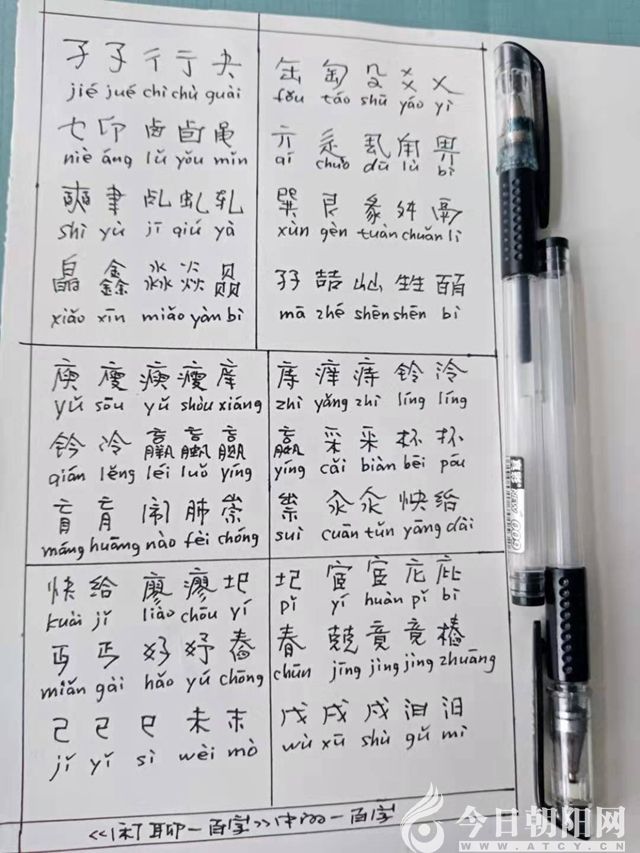 孑 孓 彳 亍 夬
jié jué chì chù guài
乜 卬 卤 卣 黾
niè áng lǔ yǒu mǐn
奭 聿 乩 虬 轧
shì yù jī qiú yà
皛 鑫 淼 焱 赑
xiǎo xīn miǎo yàn bì
缶 匋 殳 爻 乂
fǒu táo shū yáo yì
亓 辵 厾 甪 畀
qí chuò dū lù bì
巽 艮 彖 舛 鬲
xùn gèn tuàn chuǎn lì
孖 喆 屾 甡 皕
mā zhé shēn shēn bì
庾 廋 瘐 瘦 庠
yǔ sōu yǔ shòu xiáng
钤 冷 羸 蠃 嬴
qián lěng léi luǒ yíng
盲 肓 闹 肺 崇
máng huāng nào fèi chóng
庤 痒 痔 铃 泠
zhì yǎng zhì líng líng
赢 采 釆 杯 抔
yíng cǎi biàn bēi póu
祟 汆 氽 怏 绐
suì cuān tǔn yāng dài
快 给 廖 瘳 圯
kuài jǐ liào chōu yí
丏 丐 好 妤 舂
miǎn gài hǎo yú chōng
己 已 巳 未 末
jǐ yǐ sì wèi mò
圮 宧 宦 庀 庇
pǐ yí huàn pǐ bì
春 兢 竟 竞 樁
chūn jīng jìng jìng zhuāng
戊 戌 戍 汩 汨
wù xū shù gǔ mì
《闲聊一百字》中的一百字
今日朝阳网
WWW.ATCY.CN